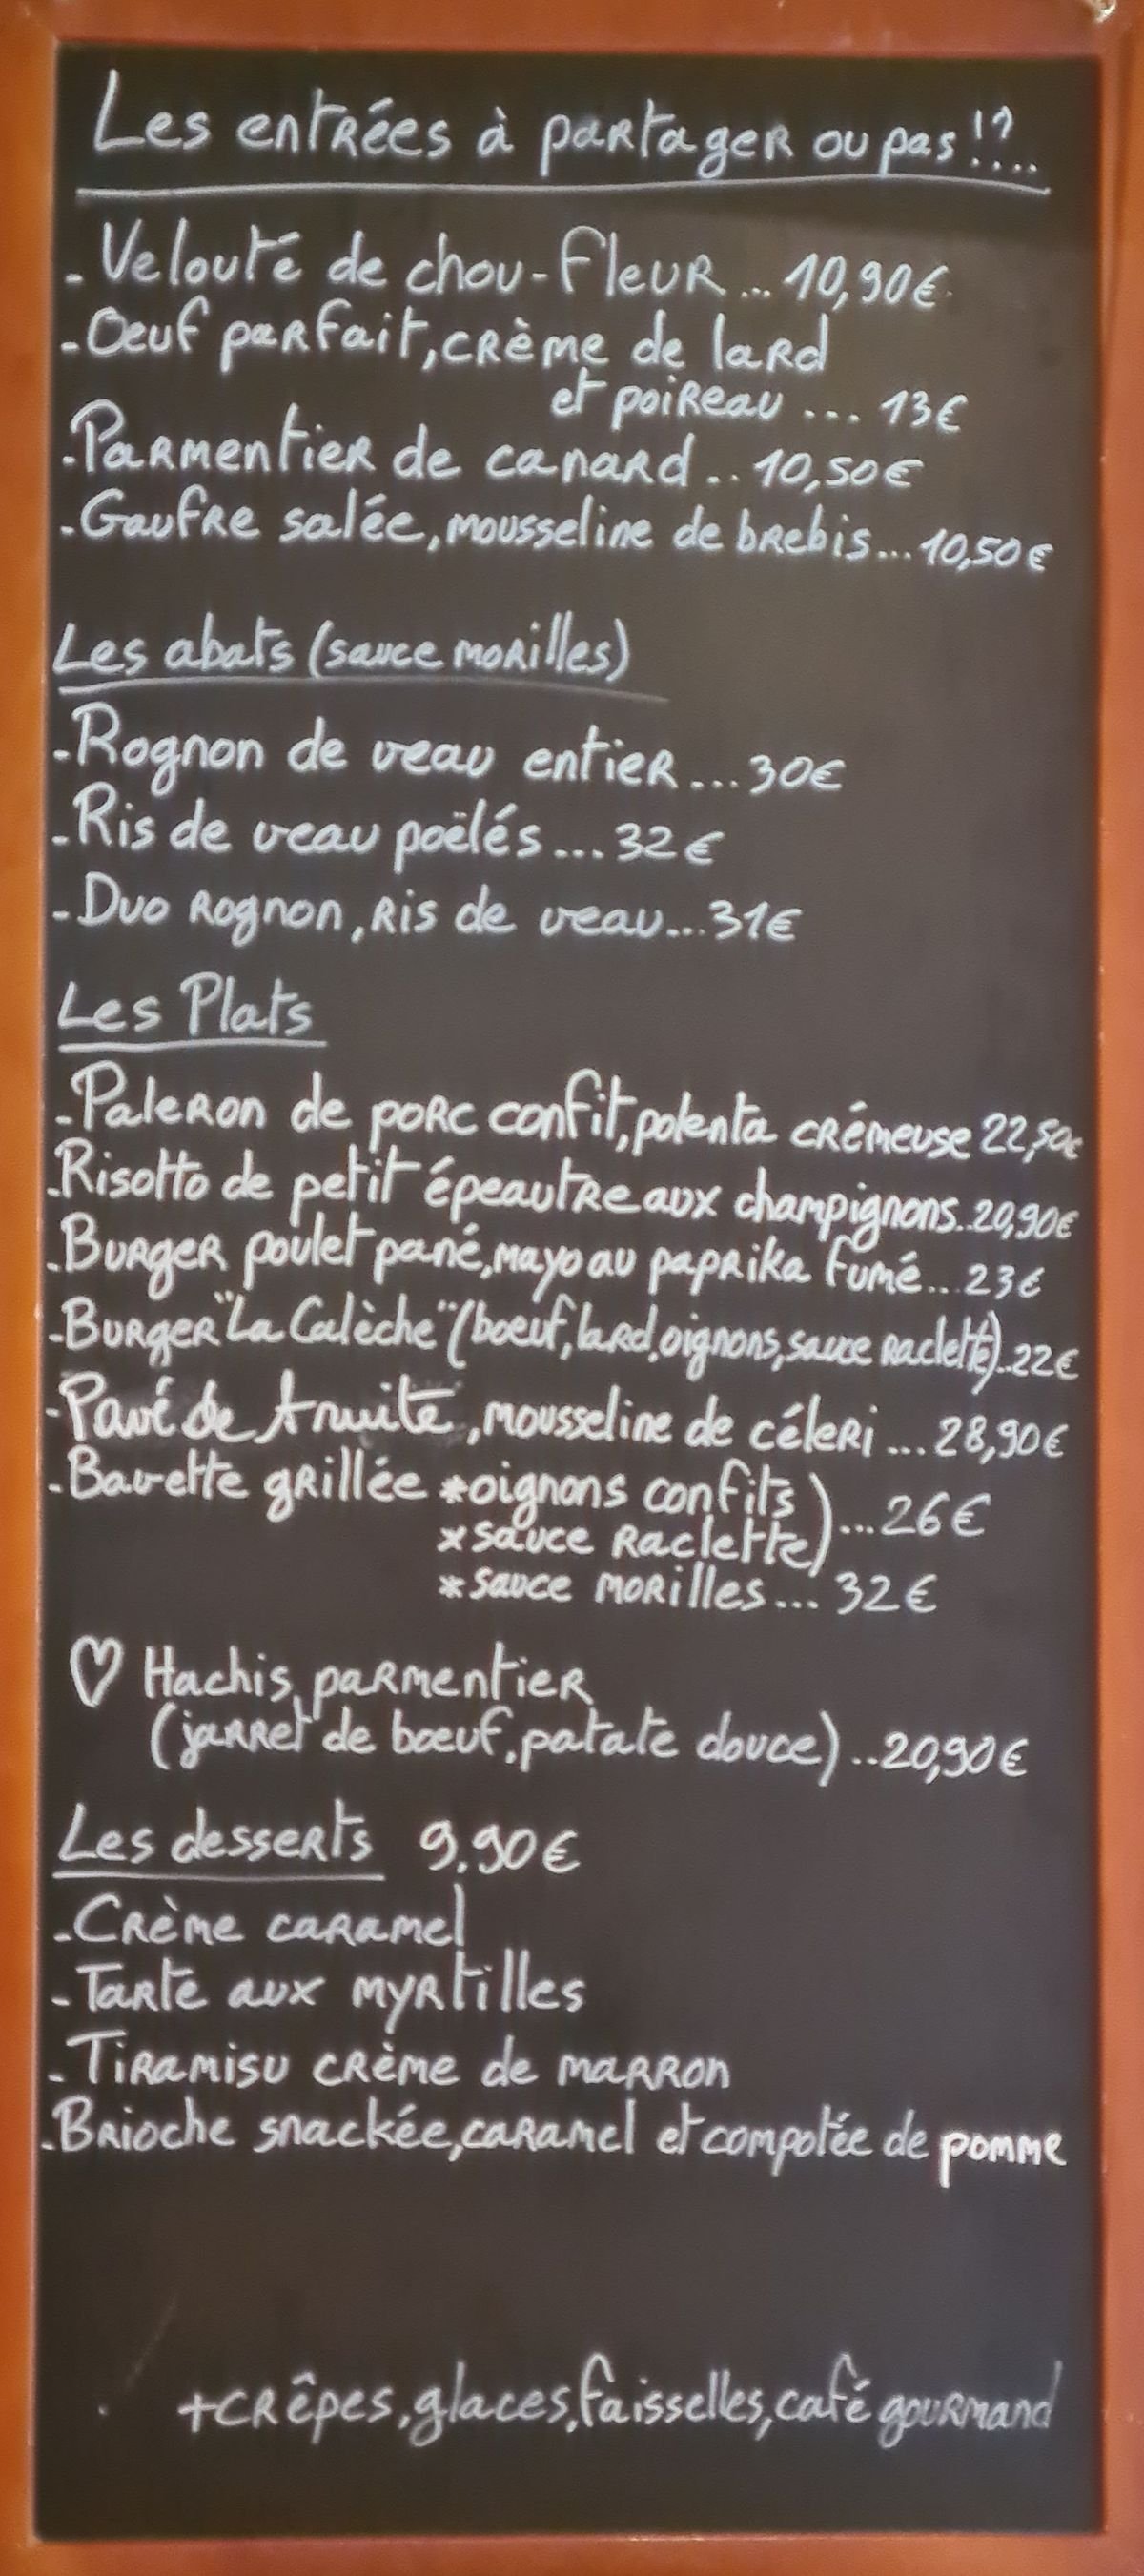 Les entrées à partager ou pas!?...
- Velouté de chou-fleur... 10,90€
- Oeuf parfait, crème de lard
et poireau... 13€
- Parmentier de canard.. 10,50€
- Gaufre salée, mousseline de brebis... 10,50€
Les abats (sauce morilles)
- Rognon de veau entier... 30€
- Ris de veau poëlés... 32€
- Duo rognon, ris de veau... 31€
Les Plats
- Paleron de porc confit, polenta crémeuse 22,50€
- Risotto de petit épeautre aux champignons.. 20,90€
- Burger poulet pané, mayo au paprika fumé... 23€
- Burger "La Calèche" (boeuf, lard, oignons, sauce raclette).. 22€
- Pavé de truite, mousseline de céleri... 28,90€
- Bavette grillée *oignons confits
*sauce raclette)... 26€
*sauce morilles... 32€
♡ Hachis parmentier
(jarret de bœuf, patate douce)..20,90€
Les desserts 9,90€
- Crème caramel
- Tarte aux myrtilles
- Tiramisu crème de marron
- Brioche snackée, caramel et compotée de pomme
+crêpes, glaces, faisselles, café gourmand